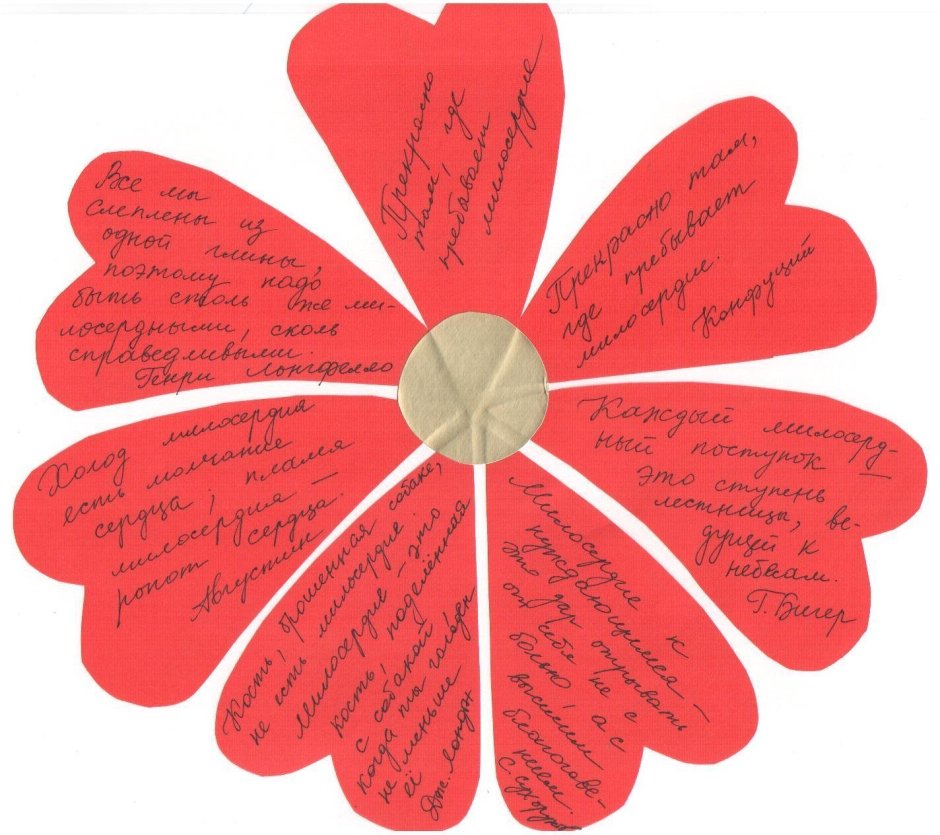 Прекрасно
там, где
пребывает
милосердие
Прекрасно там,
где пребывает
милосердие.
Конфуций
Каждый милосерд-
ный поступок —
это ступень
лестницы, ве-
дущей к
небесам.
Г. Бичер
Милосердие к
нуждающимся —
это дар отрывать
от себя не с
болью, а с
высшим
благогове-
нием.
Кость, брошенная собаке,
не есть милосердие.
Милосердие – это
кость, поделённая
с собакой,
когда ты голоден
не меньше
её
Дж. Лондон
Холод милосердия
есть молчание
сердца; пламя
милосердия —
ропот сердца.
Августин
Все мы
слеплены из
одной глины,
поэтому надо
быть столь же ми-
лосердными, сколь
справедливыми.
Генри Лонгфелло